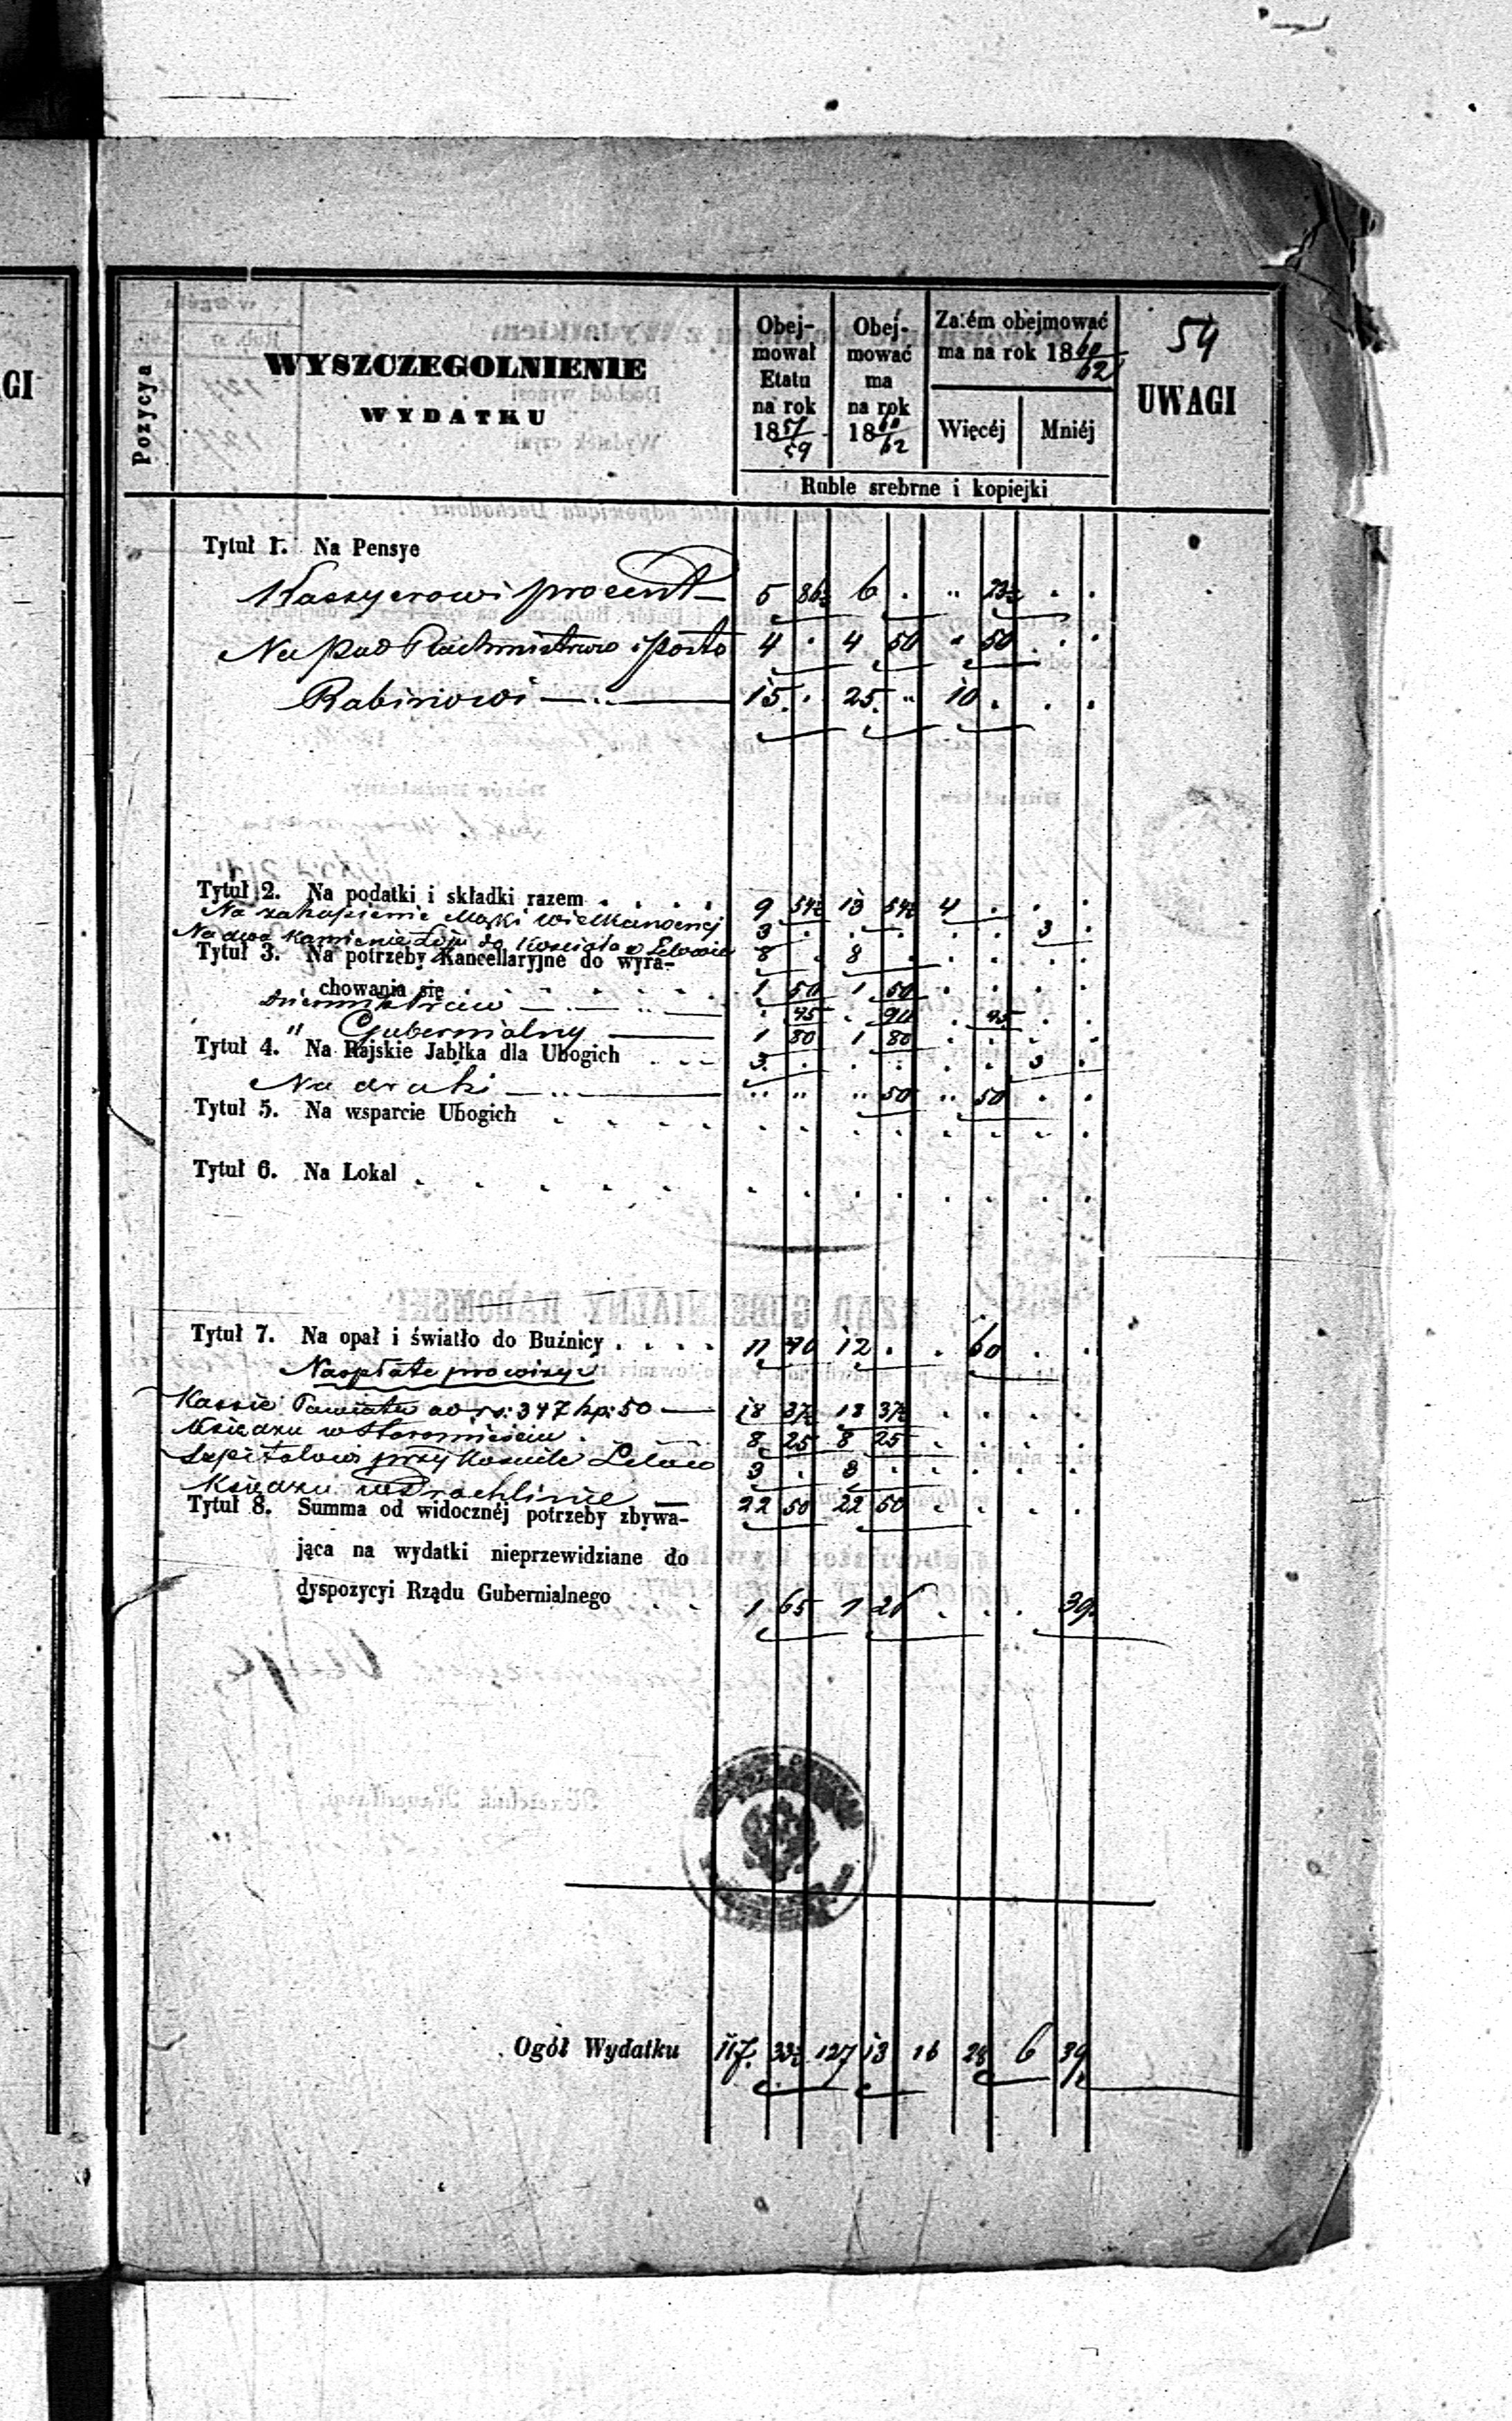 GI
54
Pozycya
WYSZCZEGOLNIENIE
WYDATKU
Obejmował Etatu na rok 1857/59
Obejmować ma na rok 1860/62
Zatém obejmować ma na rok 1860/62
Więcéj
Mniéj
UWAGI
Ruble srebrne i kopiejki
Tytuł 1. Na Pensye
Kassyerowi procent 5 86½ 6 . " 23½ . .
Na Rachmistrza i porto 4 . 4 50 " 50 . .
Rabinowi 15 . 25 " 10 . . .
Tytuł 2. Na podatki i składki razem . . . . 9 54½ 13 54½ 4 . . .
Na zakupienie Mąki Wielkanocnej 3 . . . . . 3 .
Na dwa Kamienie Łoju do Kościoła w Lelowie 8 . 8 . . . . .
Tytuł 3. Na potrzeby Kancellaryjne do wyra-
chowania się 1 50 1 50 . . . .
Dziennik Praw . 45 . 90 . 45 . .
" Gubernialny 1 80 1 80 . . . .
Tytuł 4. Na Rajskie Jabłka dla Ubogich 3 . . . . . 3 .
Na druki " " " 50 " 50 . .
Tytuł 5. Na wsparcie Ubogich
Tytuł 6. Na Lokal
Tytuł 7. Na opał i światło do Buźnicy . . . . 11 40 12 . . 60 . .
Na opłatę prowizyi
Kassie Powiatu od rs: 347 kp: 50 18 37½ 18 37½ . . . .
Księdzu w Staromieściu 8 25 8 25 . . . .
Szpitalowi przy Kościele Lelów 3 . 3 . . . . .
Księdzu w Drochlinie 22 50 22 50 . . . .
Tytuł 8. Summa od widocznéj potrzeby zbywa-
jąca na wydatki nieprzewidziane do
dyspozycyi Rządu Gubernialnego . . 1 65 1 26 . . . 39
Ogół Wydatku 117 33½ 127 13 16 28 6 39